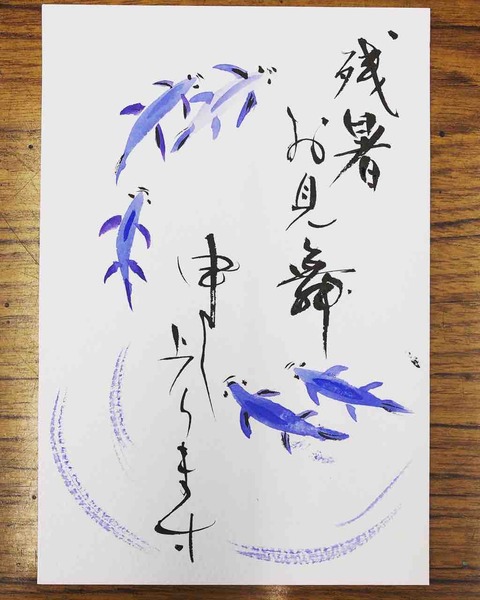 残暑
お見舞
申し上げます